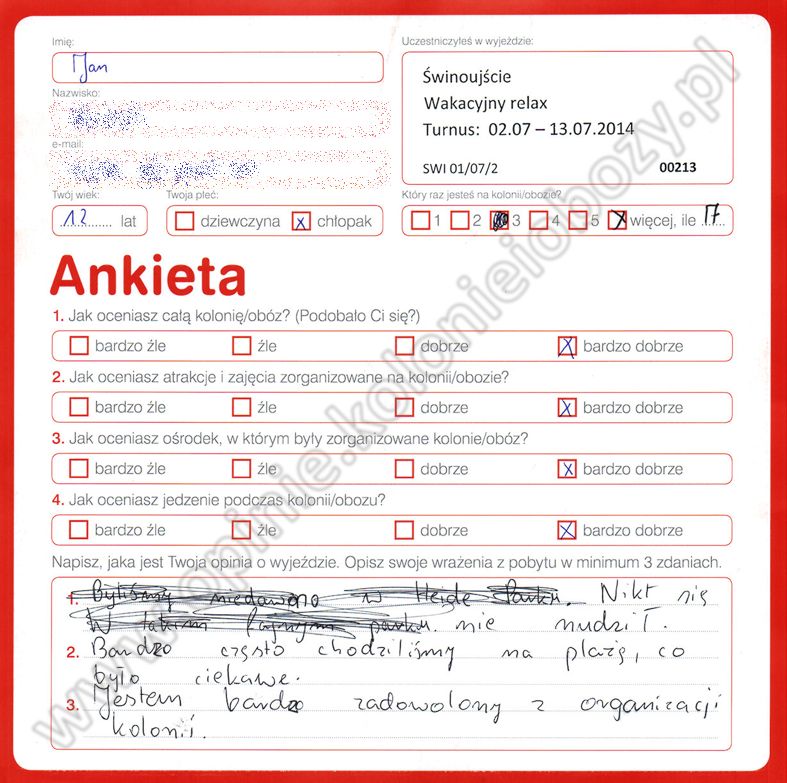 Imię:
Jan
Uczestniczyłeś w wyjeździe:
Świnoujście
Wakacyjny relax
Turnus: 02.07 – 13.07.2014
SWI 01/07/2 00213
Nazwisko:
e-mail:
Twój wiek:
12 lat
Twoja płeć:
dziewczyna x chłopak
Który raz jesteś na kolonii/obozie?
1 2 3 4 5 x więcej, ile 17
Ankieta
1. Jak oceniasz całą kolonię/obóz? (Podobało Ci się?)
bardzo źle źle dobrze x bardzo dobrze
2. Jak oceniasz atrakcje i zajęcia zorganizowane na kolonii/obozie?
bardzo źle źle dobrze x bardzo dobrze
3. Jak oceniasz ośrodek, w którym były zorganizowane kolonie/obóz?
bardzo źle źle dobrze x bardzo dobrze
4. Jak oceniasz jedzenie podczas kolonii/obozu?
bardzo źle źle dobrze x bardzo dobrze
Napisz, jaka jest Twoja opinia o wyjeździe. Opisz swoje wrażenia z pobytu w minimum 3 zdaniach.
1. Byliśmy niedawno w Heide Parku. Nikt się
W takim fajnym parku. nie nudził.
2. Bardzo często chodziliśmy na plażę, co
było ciekawe.
3. Jestem bardzo zadowolony z organizacji
kolonii.
www.opinie.kolonieiobozy.pl